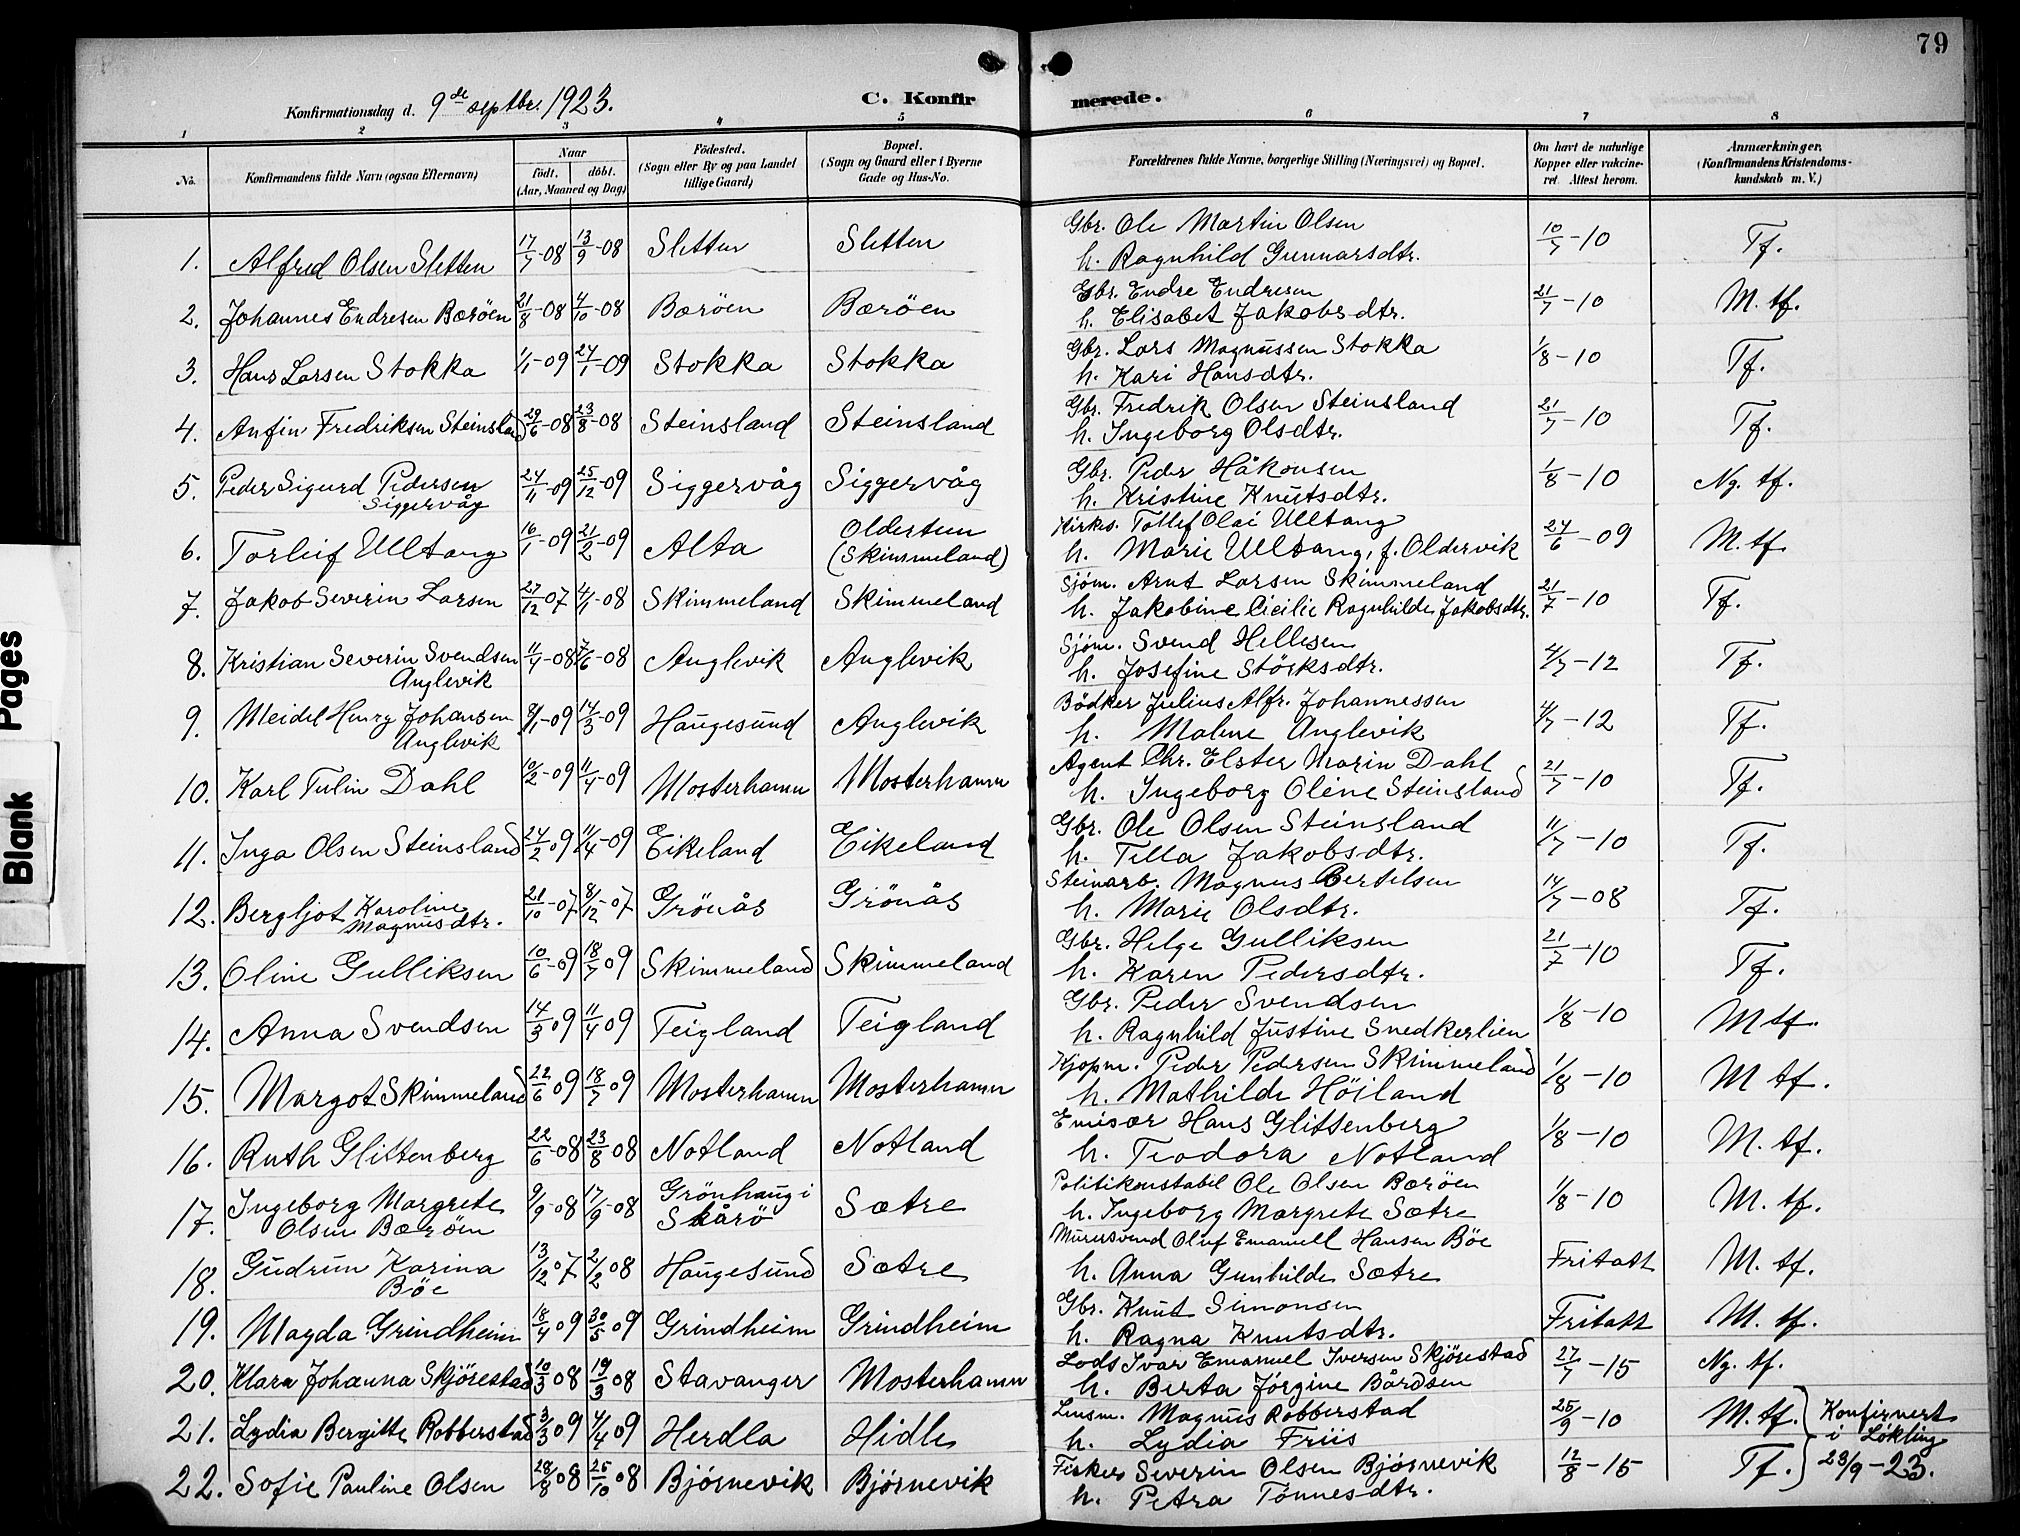 79
Konfirmationsdag d. 9de septbr. 1923.
C. Konfirmerede.
1 2 3 4 5 6 7 8
No. Konfirmandens fulde Navn (ogsaa Efternavn) Naar født. døbt. (Aar, Maaned og Dag) Fødested. (Sogn eller By og paa Landet tillige Gaard) Bopæl. (Sogn og Gaard eller i Byerne Gade og Hus-No. Forældrenes fulde Navne, borgerlige Stilling (Næringsvei) og Bopæl. Om havt de naturlige Kopper eller vaccineret. Attest herom. Anmærkninger. (Konfirmandens Kristendomskundskab m. V.)
1. Alfred Olsen Sletten 17/7-08 13/9-08 Sletten Sletten Gbr. Ole Martin Olsen 10/7-10 Tf.
h. Ragnhild Gunnarsdtr.
2. Johannes Endresen Børøen 21/8-08 4/10-08 Børøen Børøen Gbr. Endre Endresen 21/7-10 M. tf.
h. Elisabet Jakobsdtr.
3. Hans Larsen Stokka 1/1-09 24/1-09 Stokka Stokka Gbr. Lars Magnussen Stokka 1/8-10 Tf.
h. Kari Hansdtr.
4. Anfin Fredriksen Steinsland 29/6-08 23/8-08 Steinsland Steinsland Gbr. Fredrik Olsen Steinsland 21/7-10 Tf.
h. Ingeborg Olsdtr.
5. Peder Sigurd Pedersen 24/11-09 25/12-09 Siggervåg Siggervåg Gbr. Peder Håkonsen 1/8-10 Ng. tf.
Siggervåg h. Kristine Knutsdtr.
6. Torleif Ulltang 16/1-09 21/2-09 Alta Oldertun Kirkes. Tollef Olai Ulltang 24/6-09 M. tf.
(Skimmeland) h. Marie Ulltang, f. Oldervik
7. Jakob Severin Larsen 27/12 07 4/1-08 Skimmeland Skimmeland Sjøm. Arnt Larsen Skimmeland 21/7-10 Tf.
h. Jakobine Cicilie Ragnhilde Jakobsdtr.
8. Kristian Severin Svendsen 11/4-08 7/6-08 Anglevik Anglevik Sjøm. Svend Hellesen 4/7-12 Tf.
Anglevik h. Josefine Størksdtr.
9. Meidel Henry Johansen 8/1-09 14/3-09 Haugesund Anglevik Bødker Julius Alfr. Johannessen 4/7-12 Tf.
Anglevik h. Malene Anglevik
10. Karl Tulin Dahl 10/2-09 11/4-09 Mosterhamn Mosterhamn Agent Chr. Elster Marin Dahl 21/7-10 Tf.
h. Ingeborg Oline Steinsland
11. Inga Olsen Steinsland 24/2 09 11/4-09 Eikeland Eikeland Gbr. Ole Olsen Steinsland 11/7-10 Tf.
h. Tella Jakobsdtr.
12. Bergljot Karoline 21/10-07 8/12-07 Grönås Grönås Steinarb. Magnus Bertelsen 14/7-08 Tf.
Magnusdtr. h. Marie Olsdtr.
13. Oline Gulliksen 10/6-09 18/7 09 Skimmeland Skimmeland Gbr. Helge Gulliksen 21/7-10 Tf.
h. Karen Pedersdtr.
14. Anna Svendsen 14/3 09 11/4 09 Teigland Teigland Gbr. Peder Svendsen 1/8-10 M tf.
h. Ragnhild Justine Snedkerlien
15. Margot Skimmeland 22/6 09 18/7 09 Mosterhamn Mosterhamn Kjøpm. Peder Pedersen Skimmeland 1/8-10 M tf.
h. Mathilde Höiland
16. Ruth Glittenberg 22/6-08 23/8 08 Notland Notland Emisær Hans Glittenberg 1/8-10 M. tf.
h. Teodora Notland
17. Ingeborg Margrete 9/9-08 17/9-08 Grönhaug i Sætre Politikonstabel Ole Olsen Børøen 1/8-10 M. tf.
Olsen Børøen Skårö h. Ingeborg Margrete Sætre
18. Gudrun Karina 13/12 07 2/2 08 Haugesund Sætre Murersvend Oluf Emanuell Hansen Böe Fritatt M. tf.
Böe h. Anna Gunhilde Sætre
19. Magda Grindheim 18/4 09 30/5 09 Grindheim Grindheim Gbr. Knut Simonsen Fritatt M. tf.
h. Ragna Knutsdtr.
20. Klara Johanna Skjörestad 10/3 08 19/3 08 Stavanger Mosterhamn Lods Ivar Emanuel Iversen Skjörestad 27/7-15 Ng. tf.
h. Berta Jörgine Bårdsen
21. Lydia Bergitte Robberstad 3/3 09 4/4 09 Herdla Hidle Lensm. Magnus Robberstad 25/9-10 M. tf. Konfirmert
h. Lydia Friis i Løkling
22. Sofie Pauline Olsen 28/8 08 25/10 08 Bjørnevik Bjørnevik Fisker Severin Olsen Bjørnevik 12/8-15 Tf. 23/9-23.
h. Petra Tönnesdtr.
Blank Pages